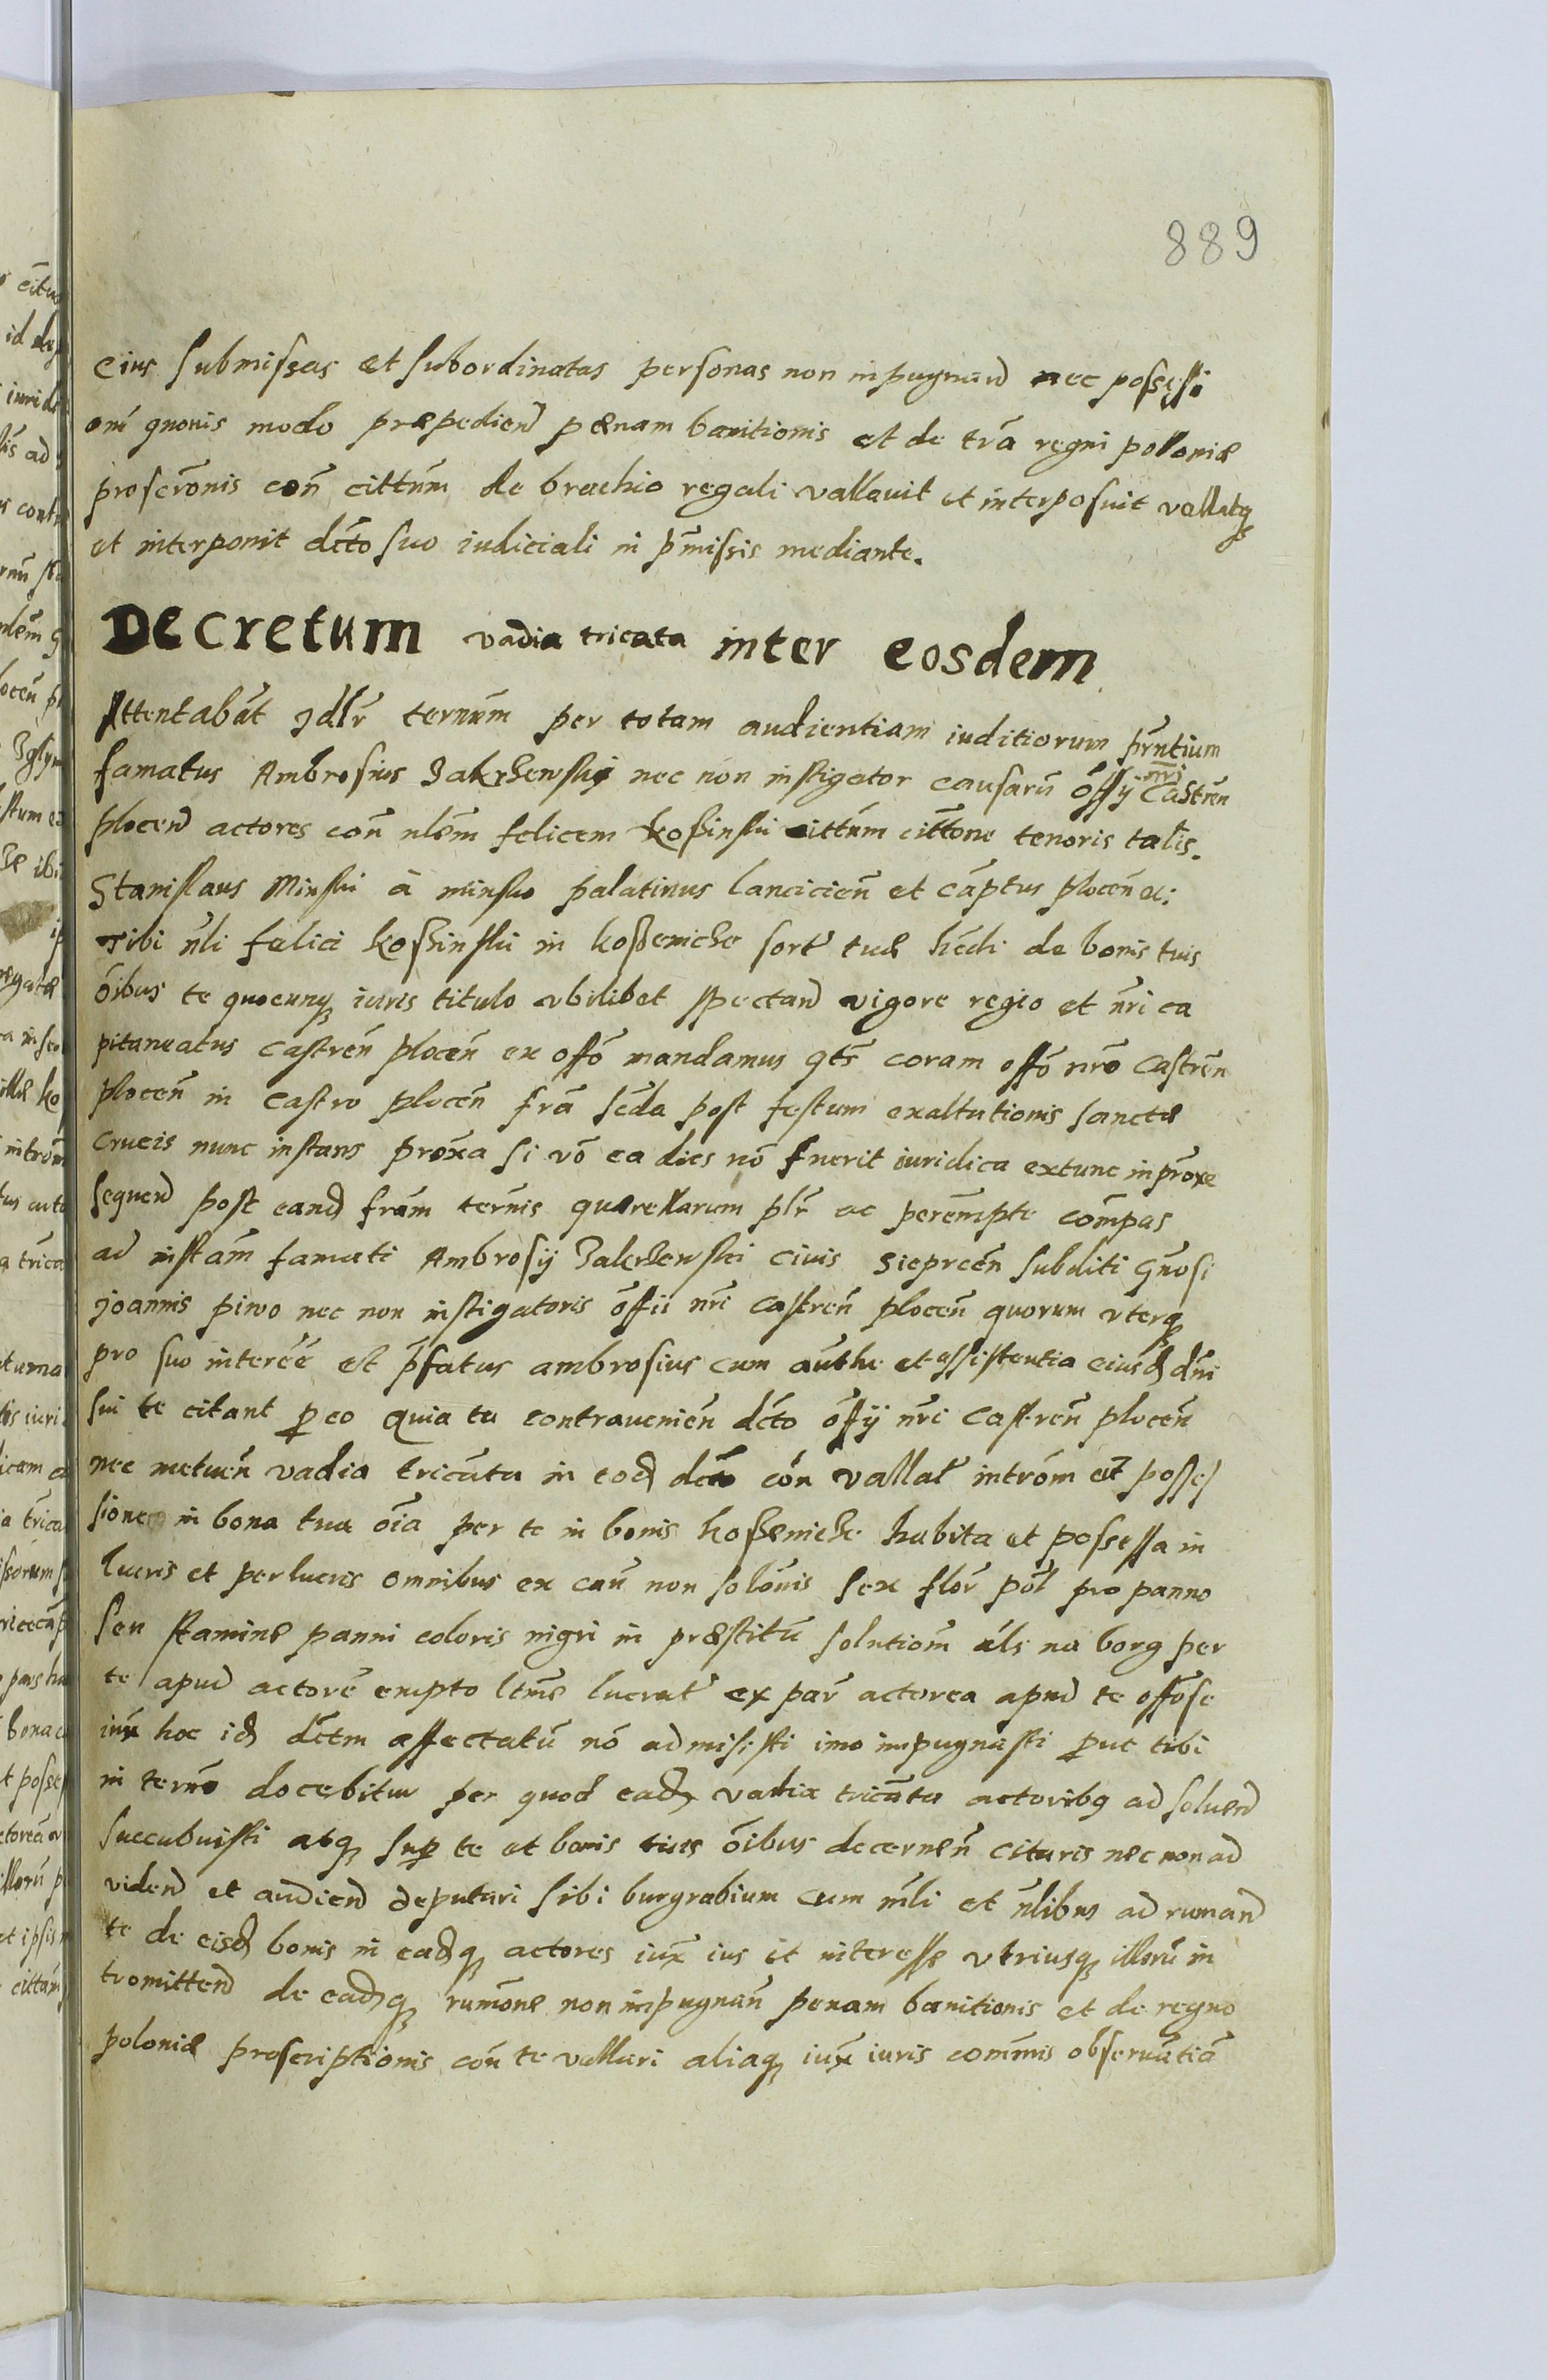 889
eius submissas et subordinatas personas non inpugnand nec possessi
oni quouis modo præpediend pænam banitionis et de tr̃a regni poloniæ
proscr̃onis con̄ cittum̄ de brachio regali vallauit et interposuit vallatq̨
et interponit dc̃to suo iudiciali in p̃missis mediante.
Decretum vadia tricata inter eosdem
Attentabãt jdlr̃ ternum̄ per totam audientiam iuditiorum pr̃ntium
famatus Ambrosius Zakrzewskij nec non instigator causarū off̃ij nr̃i Castren̄
plocen̄ actores con̄ nlem̄ felicem koßinski cittum̄ citt̃one tenoris talis.
Stanislaus Minski à minsko palatinus lancicien̄ et cap̃tus plocen̄ etc:
Tibi nl̃i felici koßinski in koßemicze sort̃ tuæ hed̃i de bonis tuis
oĩbus te quocunq̨ iuris titulo vbilibet spectan̄ vigore regio et nr̃i ca
pitaneatus castren̄ plocen̄ ex offõ mandamus qt̃s coram offõ nr̃o Castren̄
plocen̄ in castro plocen̄ fr̃a sed̃a post festum exaltationis sanctæ
crucis nunc instans prox̃a si võ ea dies nõ fuerit iuridica extunc in prox̃e
sequen̄ post eand̨ fra̅m ternis quærellarum plr̃ ac perem̃pte com̃pas
ad instãm famati Ambrosij Zakrzewski ciuis Sieprcen̄ subditi Gñosi
joannis piwo nec non instigatoris off̃ii nr̃i castren̄ plocen̄ quorum vterq̨
pro suo interẽe est p̃fatus ambrosius cum auth̃e et assistentia eiusd̨ dñi
sui te citant p̱ eo quia tu contrauenien̄ dc̃to off̃ij nr̃i castren̄ plocen̄
nec metuen̄ vadia tricata in eod̨ dc̃to con̄ vallat̃ intrõm et posses
sionem in bona tua oĩa per te in bonis koßemicze habita et possessa in
lucris et perlucris omnibus ex cau̅ non solõnis sex flor̃ pol̃ pro panno
seu stamine panni coloris nigri in præstitū solutiom̃ al̃s na borg per
te apud actorē empto ltm̃e lucrat̃ ex par̃ actorea apud te off̃ose
iux̃ hoc id̨ dc̃tm affectatū nõ admisisti imo impugnasti p̱ut tibi
in ternõ docebitur per quod ead̨ vadia tricata actoribq̨ ad soluend
succubuisti atq̨ sup̱ te et bonis tuis oĩbus decernen̄ cituris nec non ad
videnđ et audienđ deputari sibi burgrabium cum ml̃i et nl̃ibus ad rumand
te de eisd̨ bonis in eadq̨ actores iux̃ ius et interesse vtriusq̨ illorū in
tromittend de eadq̨ rumõne non impugnan̄ penam banitionis et de regno
poloniæ proscriptionis con̄ te vallari aliaq̨ iux̃ iuris com̃mis obseruãtiã